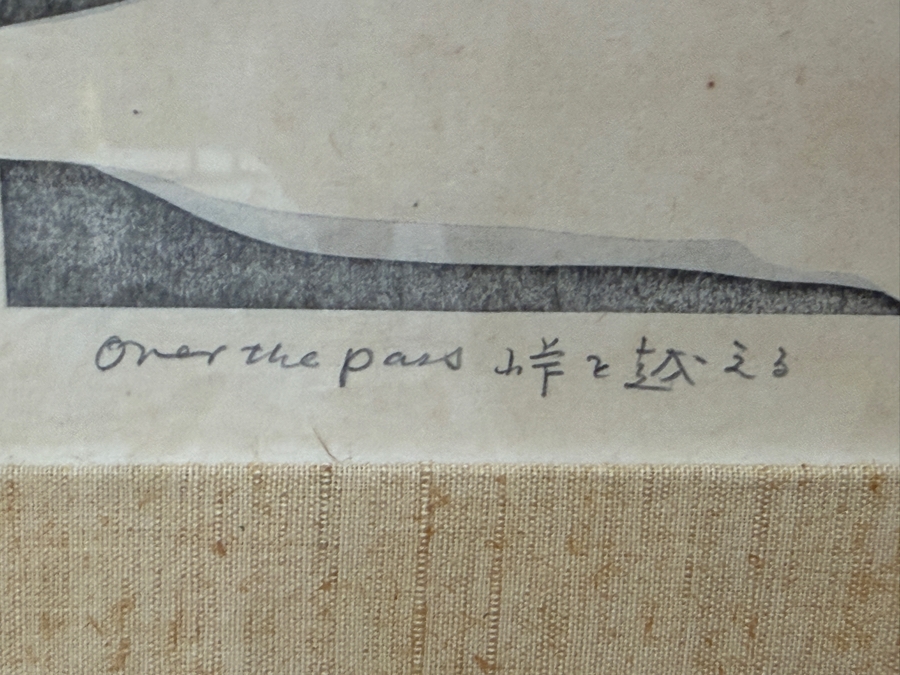 Over the pass 峠を越える